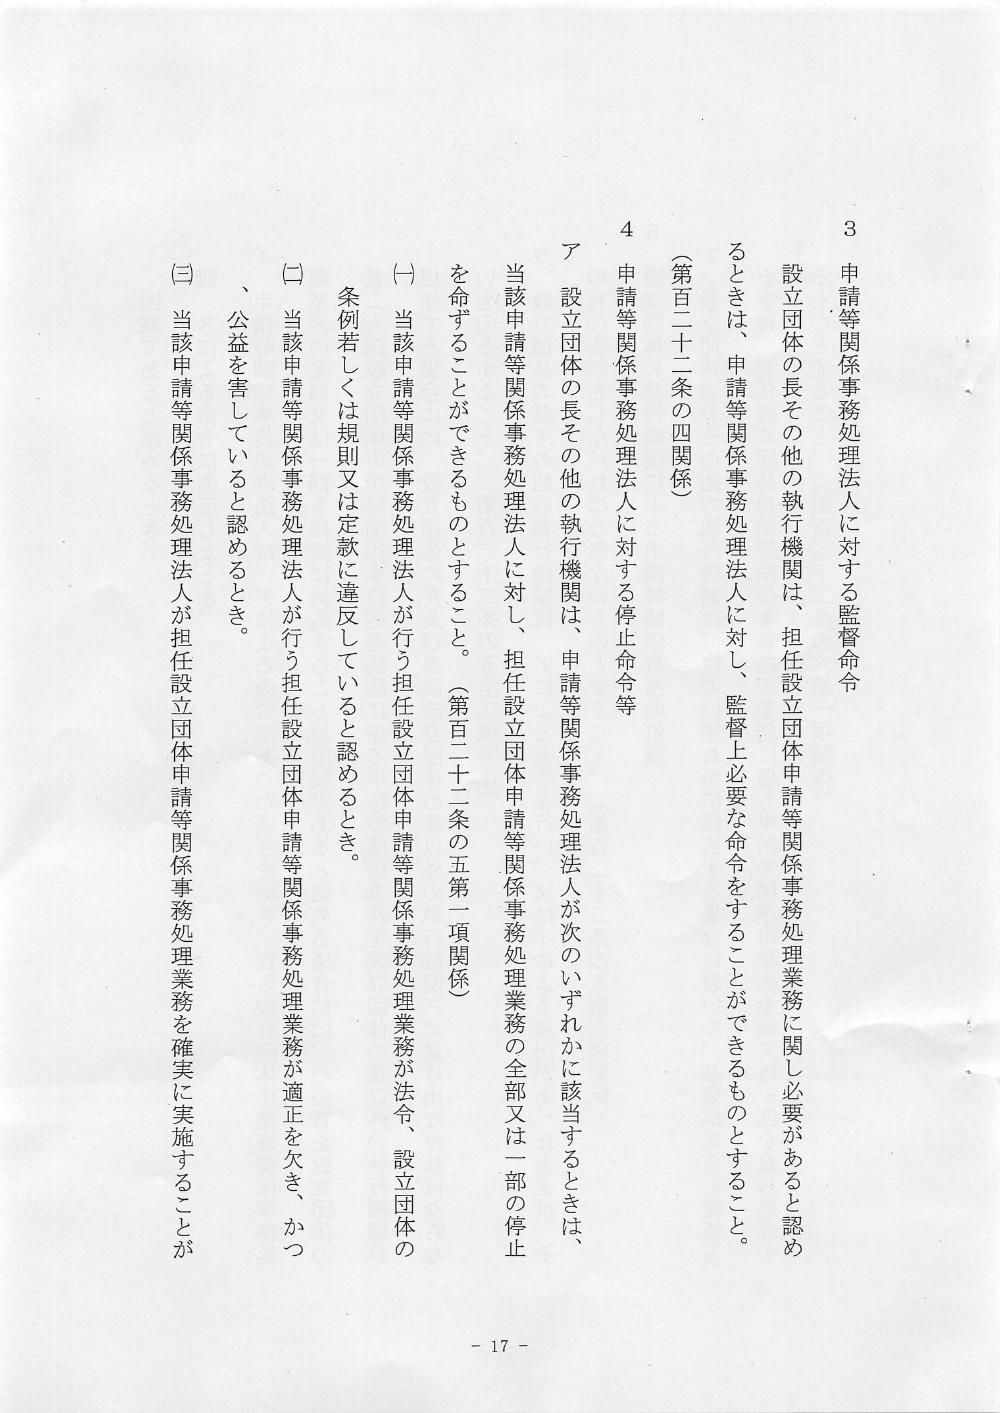 ３　申請等関係事務処理法人に対する監督命令
設立団体の長その他の執行機関は、担任設立団体申請等関係事務処理業務に関し必要があると認め
るときは、申請等関係事務処理法人に対し、監督上必要な命令をすることができるものとすること。
（第百二十二条の四関係）
４　申請等関係事務処理法人に対する停止命令等
ア　設立団体の長その他の執行機関は、申請等関係事務処理法人が次のいずれかに該当するときは、
当該申請等関係事務処理法人に対し、担任設立団体申請等関係事務処理業務の全部又は一部の停止
を命ずることができるものとすること。（第百二十二条の五第一項関係）
㈠　当該申請等関係事務処理法人が行う担任設立団体申請等関係事務処理業務が法令、設立団体の
条例若しくは規則又は定款に違反していると認めるとき。
㈡　当該申請等関係事務処理法人が行う担任設立団体申請等関係事務処理業務が適正を欠き、かつ
、公益を害していると認めるとき。
㈢　当該申請等関係事務処理法人が担任設立団体申請等関係事務処理業務を確実に実施することが
- 17 -